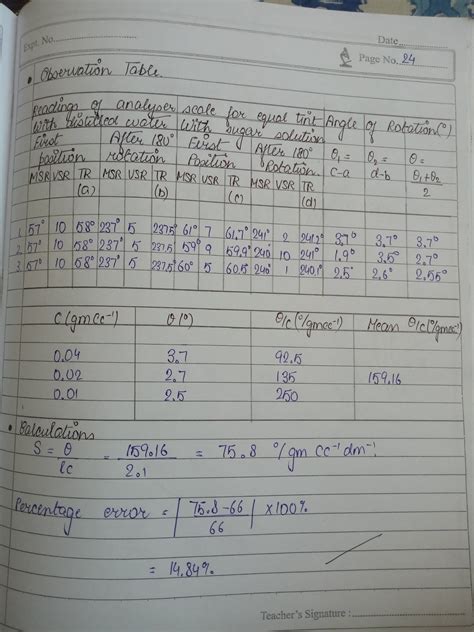 Expt. No.
Date
Page No. 24
• Observation Table
Readings of analyser scale for equal tint Angle of Rotation(°)
With distilled water With sugar solution
First After 180° First After 180° θ₁= θ₂= θ=
position rotation Position Rotation. c-a d-b θ₁+θ₂
MSR VSR TR MSR VSR TR MSR VSR TR MSR VSR TR 2
(a) (b) (c) (d)
1. 57° 10 58° 237° 5 237.5° 61° 7 61.7° 241° 2 241.2° 3.7° 3.7° 3.7°
2. 57° 10 58° 237° 5 237.5 59° 9 59.9° 240° 10 241° 1.9° 3.5° 2.7°
3. 57° 10 58° 237° 5 237.5° 60° 5 60.5 240° 1 240.1° 2.5° 2.6° 2.55°
C (gm cc⁻¹) θ (°) θ/c (°/gmcc⁻¹) Mean θ/c (°/gmcc⁻¹)
0.04 3.7 92.5
0.02 2.7 135 159.16
0.01 2.5 250
• Calculations
S = θ = 159.16 = 75.8 °/gm cc⁻¹ dm⁻¹
lc 2.1
Percentage error = | 75.8-66 | ×100%
66
= 14.84%
Teacher's Signature :